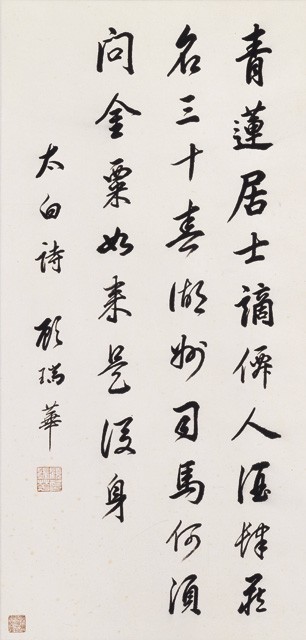 青蓮居士謫僊人酒肆藏
名三十春湖州司馬何須
問金粟如來是後身
太白詩 顧瑞華